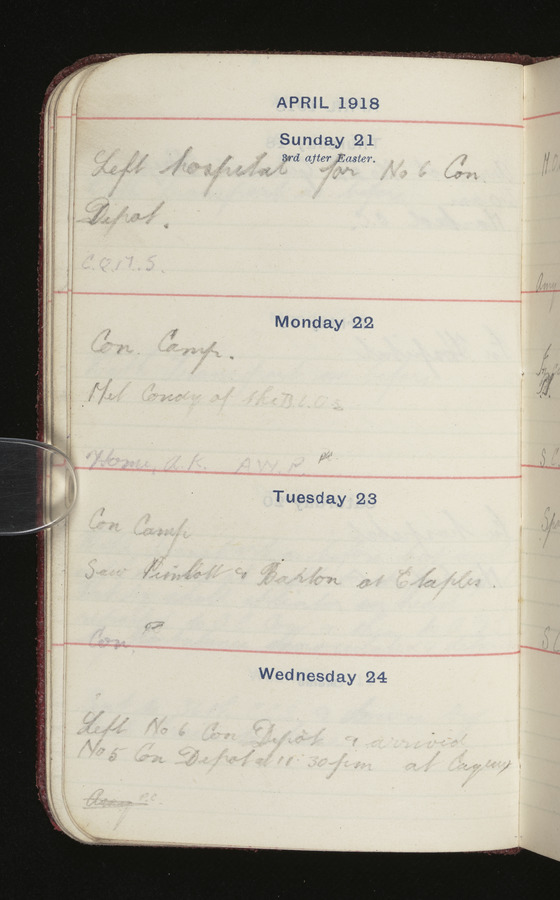 APRIL 1918
Sunday 21
3rd after Easter.
Left hospital for No 6 Con
Depot.
C.Q.M.S.
Monday 22
Con. Camp.
Met Condy of the
Home, a.k. A.W.P. pc
Tuesday 23
Con Camp
Saw Pimlott & Barlon at Etaples.
Con. pc
Wednesday 24
Left No 6 Con Depôt & arrived
No 5 Con Depot at 11.30 pm at Cayeux
P.C.